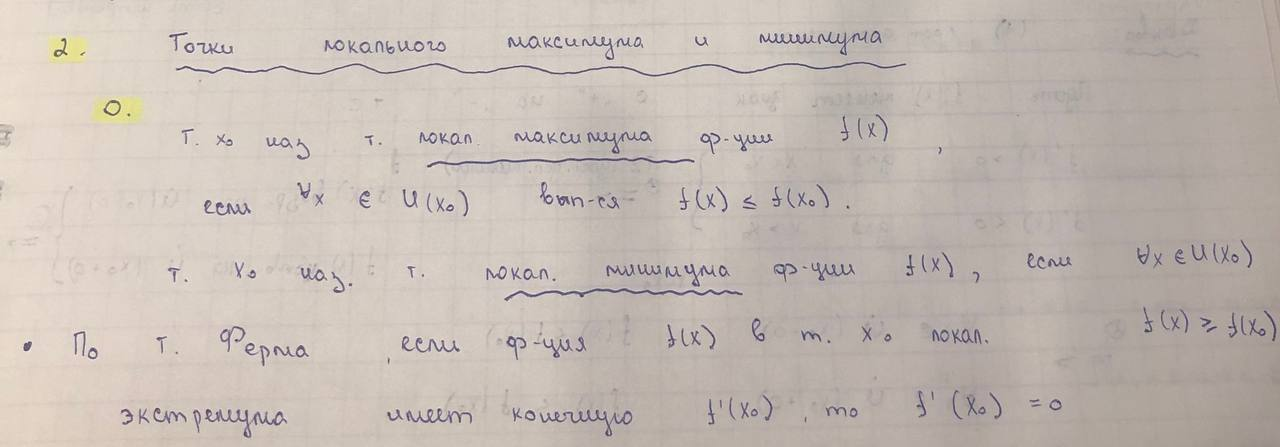 2. Точки локального максимума и минимума
О.
Т. x₀ наз т. локал. максимума ф-ции f(x),
если ∀x ∈ U(x₀) вып-ся f(x) ≤ f(x₀).
т. x₀ наз. т. локал. минимума ф-ции f(x), если ∀x ∈ U(x₀)
f(x) ≥ f(x₀)
• По т. Ферма, если ф-ция f(x) в т. x₀ локал.
экстремума имеет конечную f'(x₀), то f'(x₀) = 0